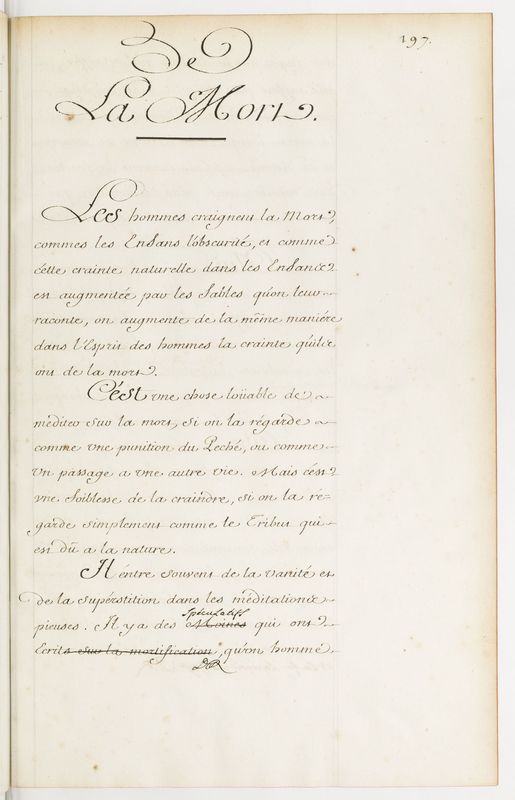 197.
De
La Mort.
Les hommes craignent la Mort,
commes les Enfans l'obscurité, et comme
cette crainte naturelle dans les Enfance
est augmentée par les fables qu'on leur
raconte, on augmente de la même maniére
dans l'Esprit des hommes la crainte qu'ils
ont de la mort.
C'ést vne chose loüable de
méditer sur la mort, si on la régarde
comme vne punition du Peché, ou comme
vn passage a vne autre vie. Mais c'ést
vne foiblesse de la craindre, si on la re=
garde simplement comme le Tribut qui
est dû a la nature.
Il éntre souvent de la vanité et
de la supérstition dans les méditations
pieuses. Il y a des Moines spéculatifs qui ont
écrit sur la mortification, qu'vn homme